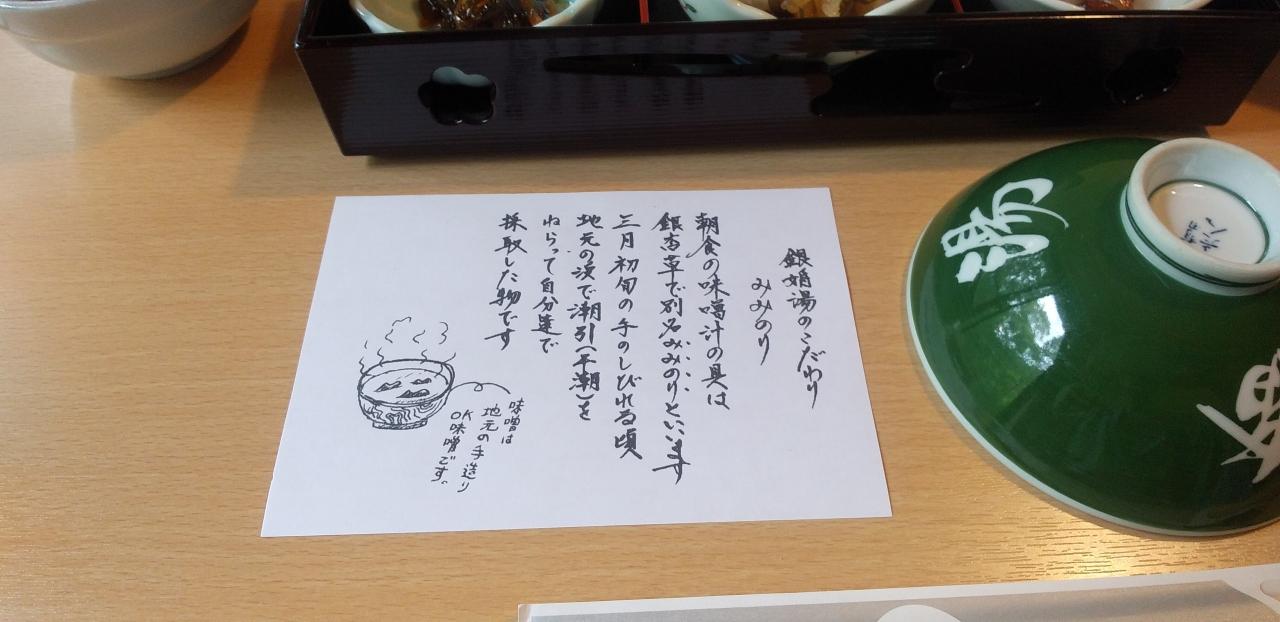 銀婚湯のこだわり
みみのり
朝食の味噌汁の具は
銀杏草で別名みみのりといいます
三月初旬の手のしびれる頃
地元の浜で潮引(干潮)を
ねらって自分達で
採取した物です
味噌は
地元の手造り
OK味噌です。
湯
婚